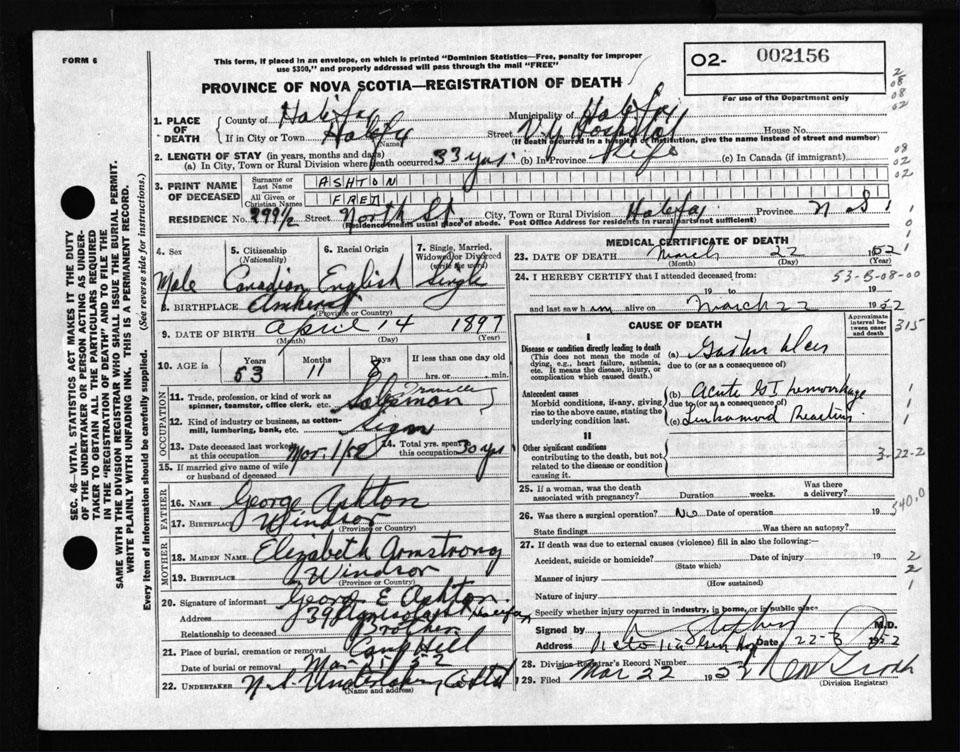 FORM 6
This form, if placed in an envelope, on which is printed "Dominion Statistics—Free, penalty for improper
use $300," and properly addressed will pass through the mail "FREE"
O2- 002156
PROVINCE OF NOVA SCOTIA—REGISTRATION OF DEATH
For use of the Department only
1. PLACE OF DEATH
County of Halifax Municipality of Halifax
If in City or Town Halifax (Name) Street V.G. Hospital House No.
(If death occurred in a hospital or institution, give the name instead of street and number)
2. LENGTH OF STAY (in years, months and days)
(a) In City, Town or Rural Division where death occurred 33 yrs. (b) In Province Life (c) In Canada (if immigrant)
3. PRINT NAME OF DECEASED
Surname or Last Name ASHTON
All Given or Christian Names FRED
RESIDENCE No. 299½ Street North St. City, Town or Rural Division Halifax Province N.S.
(Residence means usual place of abode. Post Office Address for residents in rural parts not sufficient)
4. Sex Male
5. Citizenship (Nationality) Canadian
6. Racial Origin English
7. Single, Married, Widowed or Divorced (write the word) Single
8. BIRTHPLACE Amherst
(Province or Country)
9. DATE OF BIRTH April 14 1897
(Month) (Day) (Year)
10. AGE in Years 53 Months 11 Days 8 If less than one day old
hrs. or min.
OCCUPATION
11. Trade, profession, or kind of work as spinner, teamster, office clerk, etc. Salesman Traveller
12. Kind of industry or business, as cotton-mill, lumbering, bank, etc.
13. Date deceased last worked at this occupation Mar. 1/52
14. Total yrs. spent in this occupation 30 yrs
15. If married give name of wife or husband of deceased
FATHER
16. NAME George Ashton
17. BIRTHPLACE Windsor
(Province or Country)
MOTHER
18. MAIDEN NAME Elizabeth Armstrong
19. BIRTHPLACE Windsor
(Province or Country)
20. Signature of informant George E Ashton
Address 39 Halifax
Relationship to deceased Brother
21. Place of burial, cremation or removal Camp Hill
Date of burial or removal
22. UNDERTAKER N.S. Undertaking Co Ltd
(Name and address)
MEDICAL CERTIFICATE OF DEATH
23. DATE OF DEATH March 22 1952
(Month) (Day)
24. I HEREBY CERTIFY that I attended deceased from:
53-5-08-00
19 to 19
and last saw him alive on March 22 1952
CAUSE OF DEATH
Approximate interval between onset and death
315
I
Disease or condition directly leading to death
(This does not mean the mode of dying, e.g., heart failure, asthenia, etc. It means the disease, injury, or complication which caused death.)
(a) Gastric Ulcer
due to (or as a consequence of)
Antecedent causes
Morbid conditions, if any, giving rise to the above cause, stating the underlying condition last.
(b) Acute GI hemorrhage
due to (or as a consequence of)
(c) Reaction
II
Other significant conditions
contributing to the death, but not related to the disease or condition causing it.
3-22-2
25. If a woman, was the death associated with pregnancy? Duration weeks. Was there a delivery?
540.0
26. Was there a surgical operation? No Date of operation 19
State findings Was there an autopsy?
27. If death was due to external causes (violence) fill in also the following:—
Accident, suicide or homicide? Date of injury 19
(State which)
Manner of injury
(How sustained)
Nature of injury
Specify whether injury occurred in industry, in home, or in public place
Signed by M.D.
Address Victoria Gen Hosp Date 22-3 1952
28. Division Registrar's Record Number
29. Filed Mar 22 1952
(Division Registrar)
SEC. 46—VITAL STATISTICS ACT MAKES IT THE DUTY
OF THE UNDERTAKER OR PERSON ACTING AS UNDER-
TAKER TO OBTAIN ALL THE PARTICULARS REQUIRED
IN THE "REGISTRATION OF DEATH" AND TO FILE THE
SAME WITH THE DIVISION REGISTRAR WHO SHALL ISSUE THE BURIAL PERMIT.
WRITE PLAINLY WITH UNFADING INK. THIS IS A PERMANENT RECORD.
Every item of information should be carefully supplied. (See reverse side for instructions.)